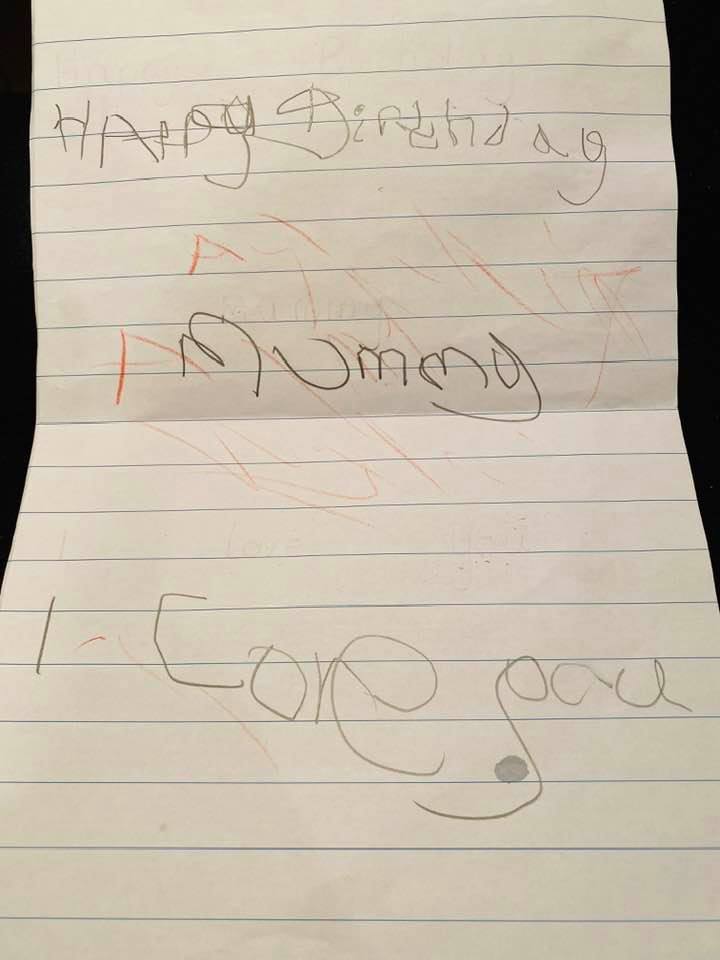 HAppy Birthday
Mummy
I Love you